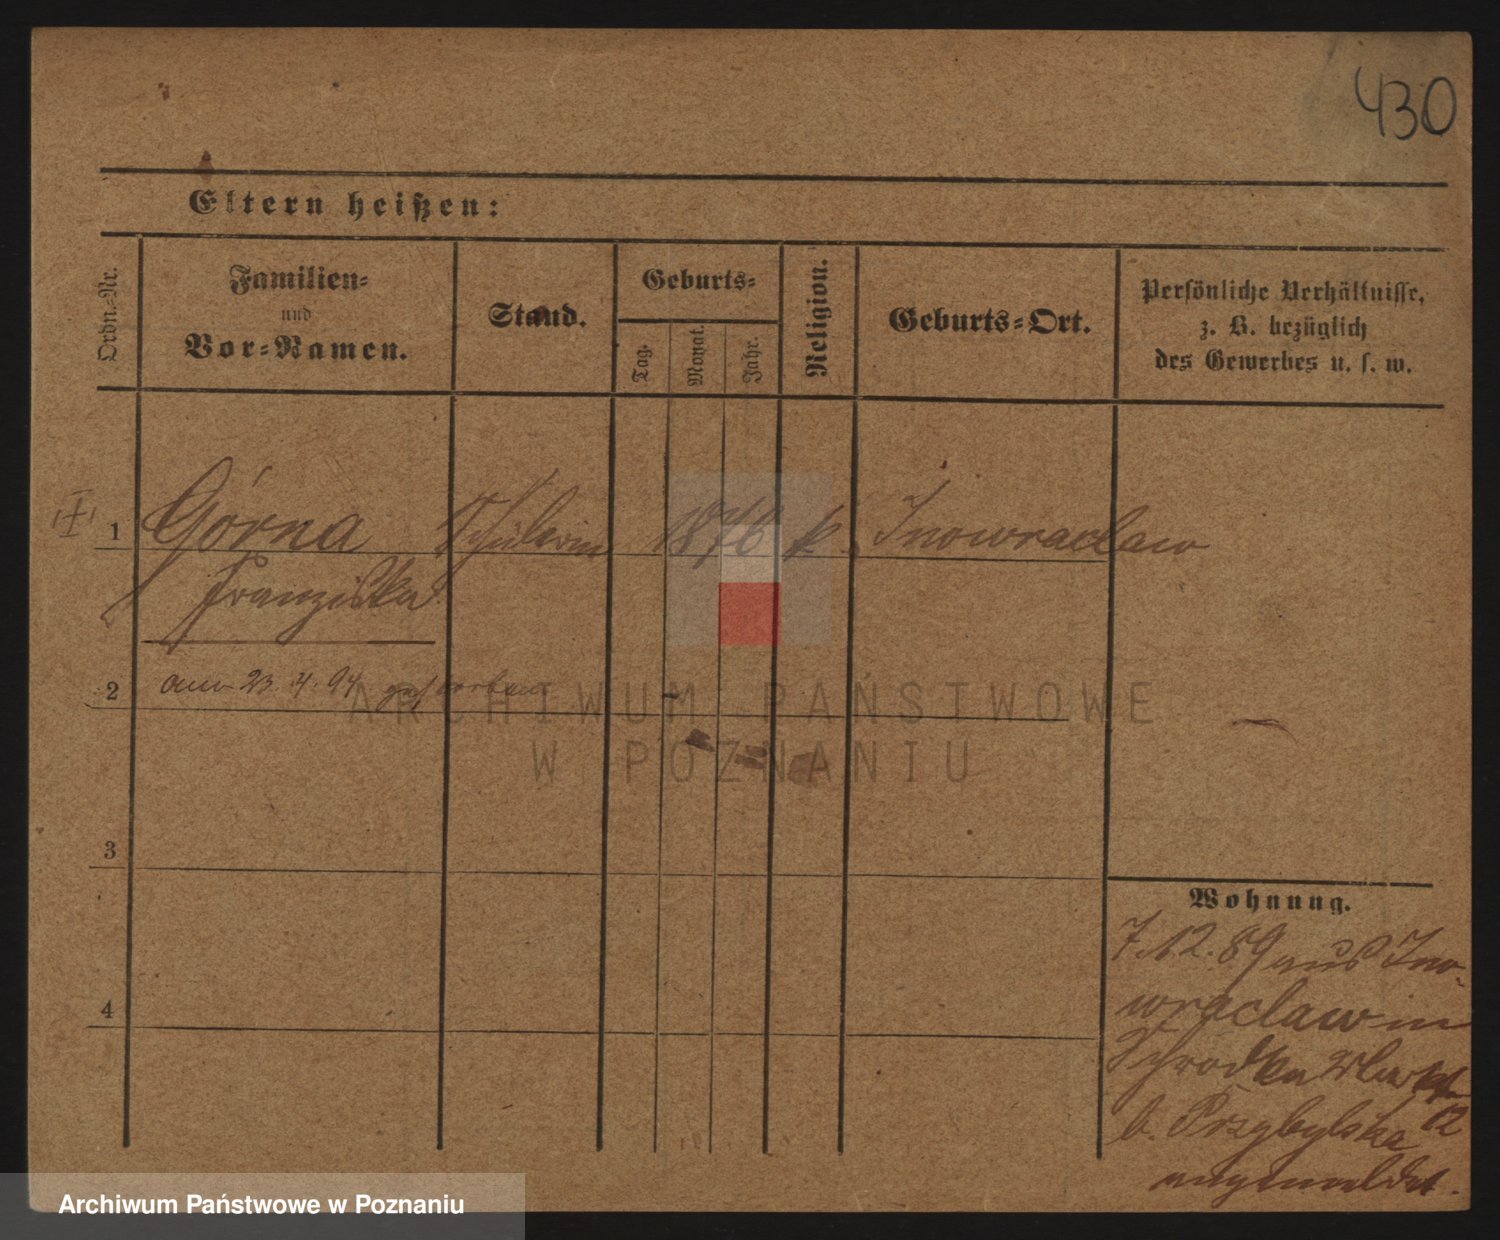 430
Eltern heißen:
Ordn.-Nr.
Familien-
und
Vor-Namen.
Stand.
Geburts-
Tag.
Monat.
Jahr.
Religion.
Geburts-Ort.
Persönliche Verhältnisse,
z. B. bezüglich
des Gewerbes u. s. w.
1 Górna Schülerin 1876 k Inowraclaw
Franziska
2 am 23. 4. 94 gestorben
ARCHIWUM PAŃSTWOWE
W POZNANIU
3
Wohnung.
7.12.89 aus Ino-
wraclaw in
Schrodka Markt
12
b. Przybylska
angemeldet.
4
Archiwum Państwowe w Poznaniu